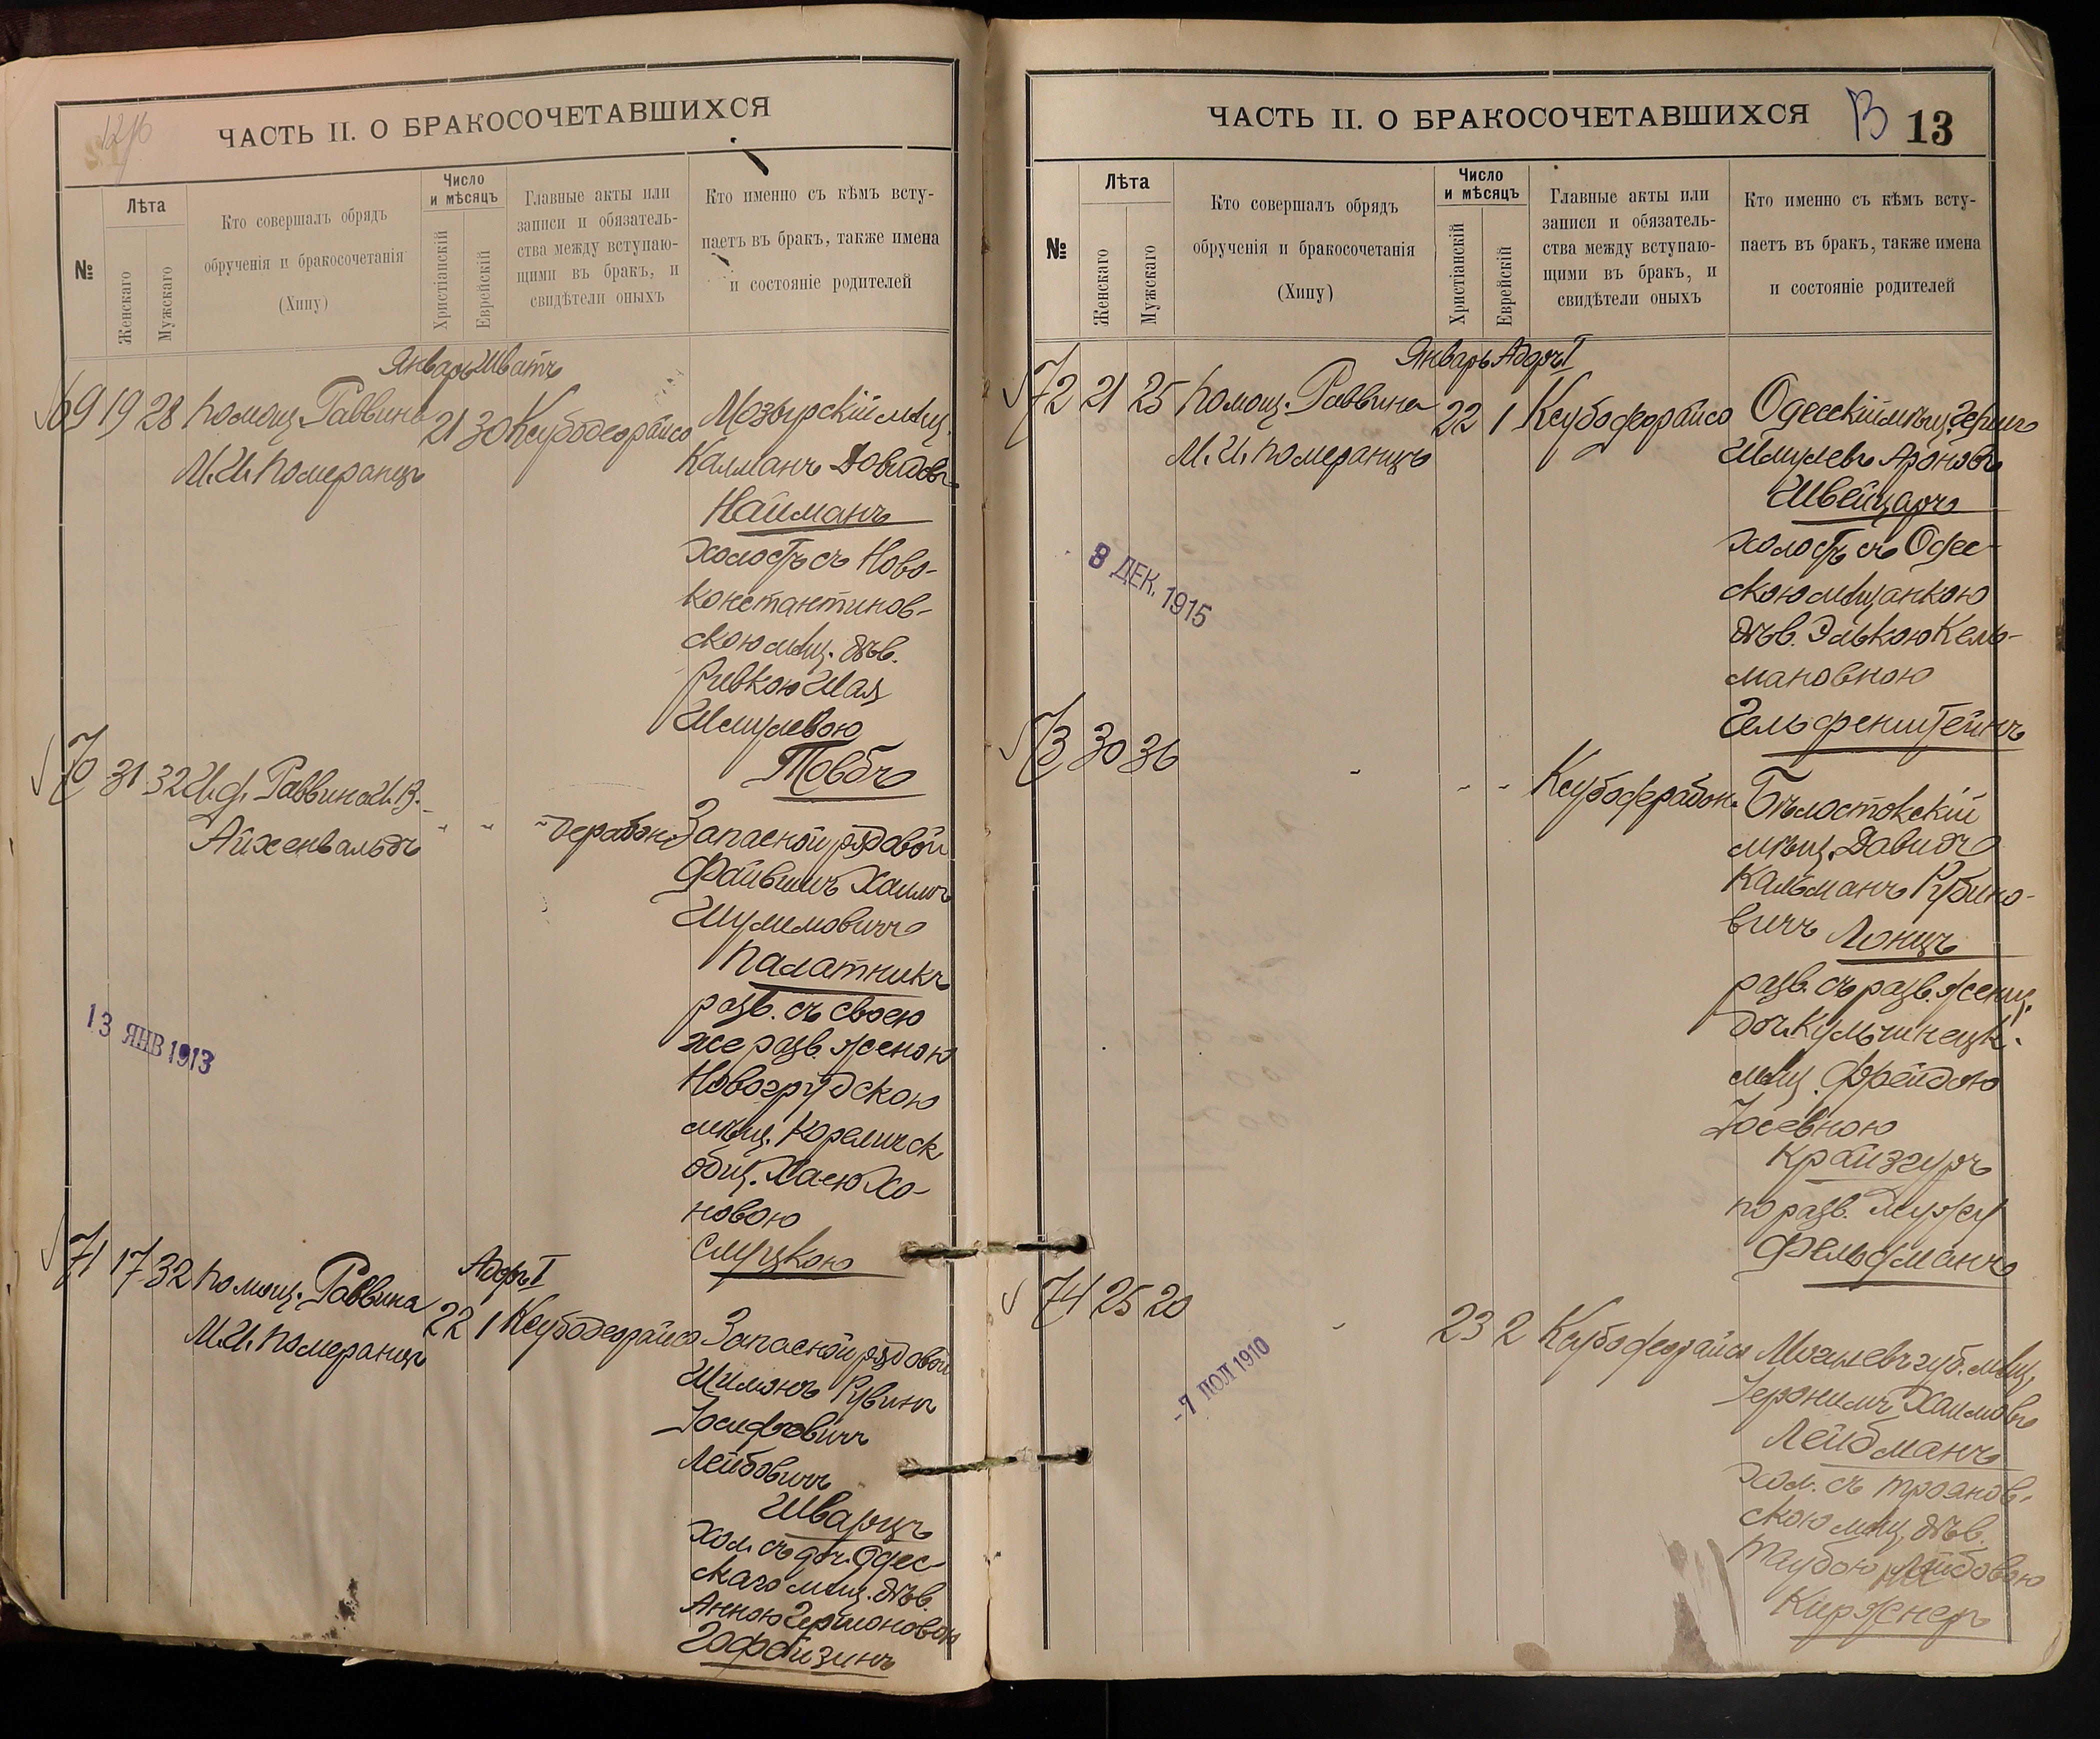 ЧАСТЬ II. О БРАКОСОЧЕТАВШИХСЯ
№
Лѣта
Женскаго
Мужскаго
Кто совершалъ обрядъ
обрученія и бракосочетанія
(Хипу)
Число
и мѣсяцъ
Христіанскій
Еврейскій
Главные акты или
записи и обязатель-
ства между вступаю-
щими въ бракъ, и
свидѣтели оныхъ
Кто именно съ кѣмъ всту-
паетъ въ бракъ, также имена
и состояніе родителей
Январь Шватъ
69 19 28 Помощ. Раввина 21 30 Ксубодеорайсо Мозырскій мѣщ.
М. И. Померанцъ Калманъ Довидовъ
Найманъ
холостъ съ Ново-
константинов-
скою мѣщ. дѣв.
Ривкою Шая
Шмулевою
Товбъ
70 31 32 И. д. Раввина И. В.
Айхенвальдъ - - - дерабон. Запасной рядовой
Файвишъ Хаимъ
Шулимовичъ
Палатникъ
разв. съ своею
же разв. женою
Новогрудскою
мѣщ. Кореличск
общ. Хаею Хо-
новою
Слуцкою
13 ЯНВ 1913
Адаръ I
71 17 32 Помощ. Раввина 22 1 Ксубодеорайсо Запасной рядовой
М. И. Померанцъ Шимонъ Рувинъ
Іосифовичъ
Лейбовичъ
Шварцъ
хол. съ доч. Одес-
скаго мѣщ. дѣв.
Анною Гершоновою
Гофайзинъ
ЧАСТЬ II. О БРАКОСОЧЕТАВШИХСЯ
13
№
Лѣта
Женскаго
Мужскаго
Кто совершалъ обрядъ
обрученія и бракосочетанія
(Хипу)
Число
и мѣсяцъ
Христіанскій
Еврейскій
Главные акты или
записи и обязатель-
ства между вступаю-
щими въ бракъ, и
свидѣтели оныхъ
Кто именно съ кѣмъ всту-
паетъ въ бракъ, также имена
и состояніе родителей
Январь Адаръ I
72 21 25 Помощ. Раввина 22 1 Ксубодеорайсо Одесскій мѣщ. Гершъ
М. И. Померанцъ Шмулевъ Ароновъ
Швейцаръ
холостъ съ Одес-
скою мѣщанкою
дѣв. Элькою Кель-
мановною
Гельфенштейнъ
8 ДЕК. 1915
73 30 36 - - - Ксубодерабон. Бѣлостокскій
мѣщ. Давидъ
Кальманъ Рубино-
вичъ Лонцъ
разв. съ разв. женщ.
доч. Кульчинецк.
мѣщ. Фрейдою
Іосевною
Крайзгуръ
по разв. мужу
Фельдманъ
74 25 20 - 23 2 Ксубодеорайсо Могилевъ губ. мѣщ.
Іеронимъ Хаимовъ
Лейбманъ
хол. съ Троянов-
скою мѣщ. дѣв.
Таубою Лейбовою
Киржнеръ
-7 ІЮЛ 1910